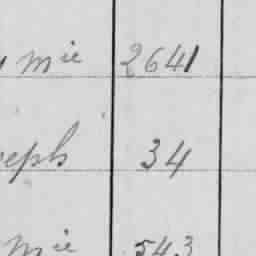 Mie 2641
seph 34
Mie 543